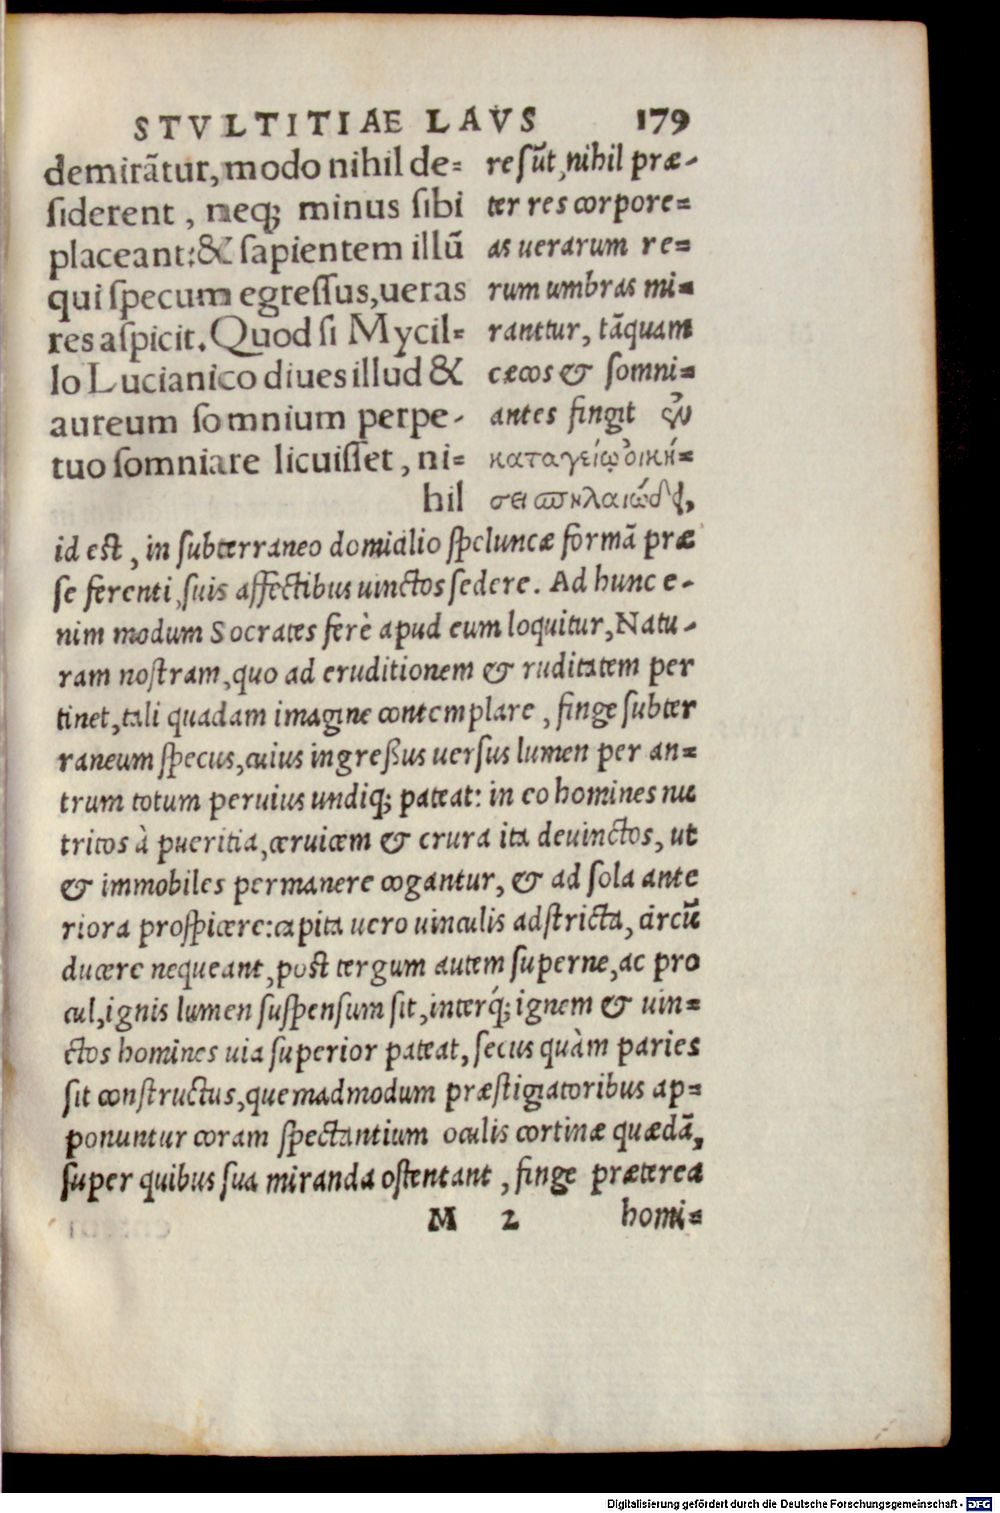 STVLTITIAE LAVS 179
demirãtur, modo nihil de=
siderent, neq; minus sibi
placeant: & sapientem illũ
qui specum egressus, ueras
res aspicit. Quod si Mycil=
lo Lucianico diues illud &
aureum somnium perpe-
tuo somniare licuisset, ni=
hil
re sũt, nihil præ-
ter res corpore=
as uerarum re=
rum umbras mi=
rantur, tãquam
cæcos & somni=
antes fingit ἐν
καταγείῳ οἰκή=
σει σπηλαιώδει,
id est, in subterraneo domicilio speluncæ formã præ
se ferenti, suis affectibus uinctos sedere. Ad hunc e-
nim modum Socrates ferè apud eum loquitur, Natu-
ram nostram, quo ad eruditionem & ruditatem per
tinet, tali quadam imagine contemplare, finge subter
raneum specus, cuius ingreßus uersus lumen per an=
trum totum peruius undiq; pateat: in eo homines nu
tritos à pueritia, ceruicem & crura ita deuinctos, ut
& immobiles permanere cogantur, & ad sola ante
riora prospicere: capita uero uinculis adstricta, circũ
ducere nequeant, post tergum autem superne, ac pro
cul, ignis lumen suspensum sit, interq́; ignem & uin=
ctos homines uia superior pateat, secus quàm paries
sit constructus, quemadmodum præstigiatoribus ap=
ponuntur coram spectantium oculis cortinæ quædã,
super quibus sua miranda ostentant, finge præterea
M 2 homi=
Digitalisierung gefördert durch die Deutsche Forschungsgemeinschaft - DFG